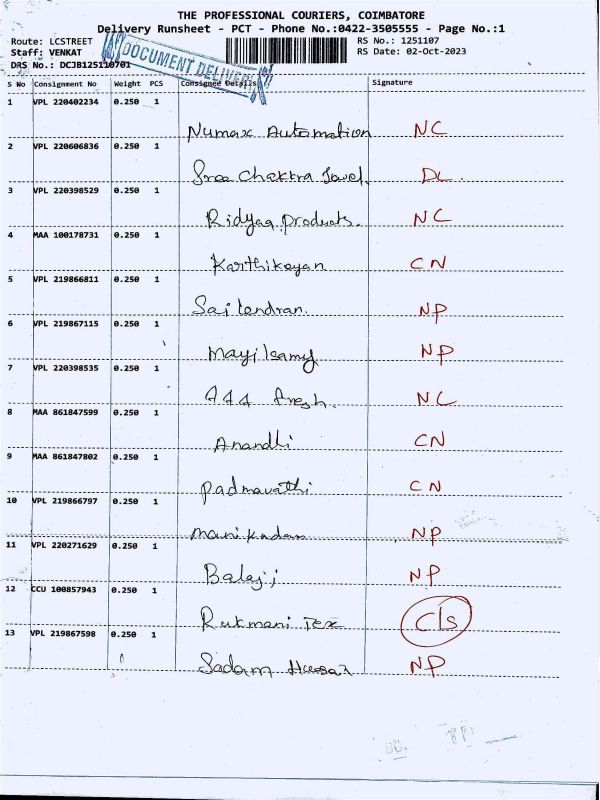 THE PROFESSIONAL COURIERS, COIMBATORE
Delivery Runsheet - PCT - Phone No.:0422-3505555 - Page No.:1
Route: LCSTREET RS No.: 1251107
Staff: VENKAT RS Date: 02-Oct-2023
DRS No.: DCJB125110701
DOCUMENT DELIVERY
S No Consignment No Weight PCS Consignee Details Signature
1 VPL 220402234 0.250 1
Numax Automation NC
2 VPL 220606836 0.250 1
Sree Chakkra Jowel. DL.
3 VPL 220398529 0.250 1
Ridyaa products. NC
4 MAA 100178731 0.250 1
Karthikeyan CN
5 VPL 219866811 0.250 1
Sai lendran. NP
6 VPL 219867115 0.250 1
Mayilsamy NP
7 VPL 220398535 0.250 1
fresh. NC
8 MAA 861847599 0.250 1
Anandhi CN
9 MAA 861847802 0.250 1
Padmavathi CN
10 VPL 219866797 0.250 1
manikadan NP
11 VPL 220271629 0.250 1
Balaji NP
12 CCU 100857943 0.250 1
Rukmani Tex C/s
13 VPL 219867598 0.250 1
Sadam NP